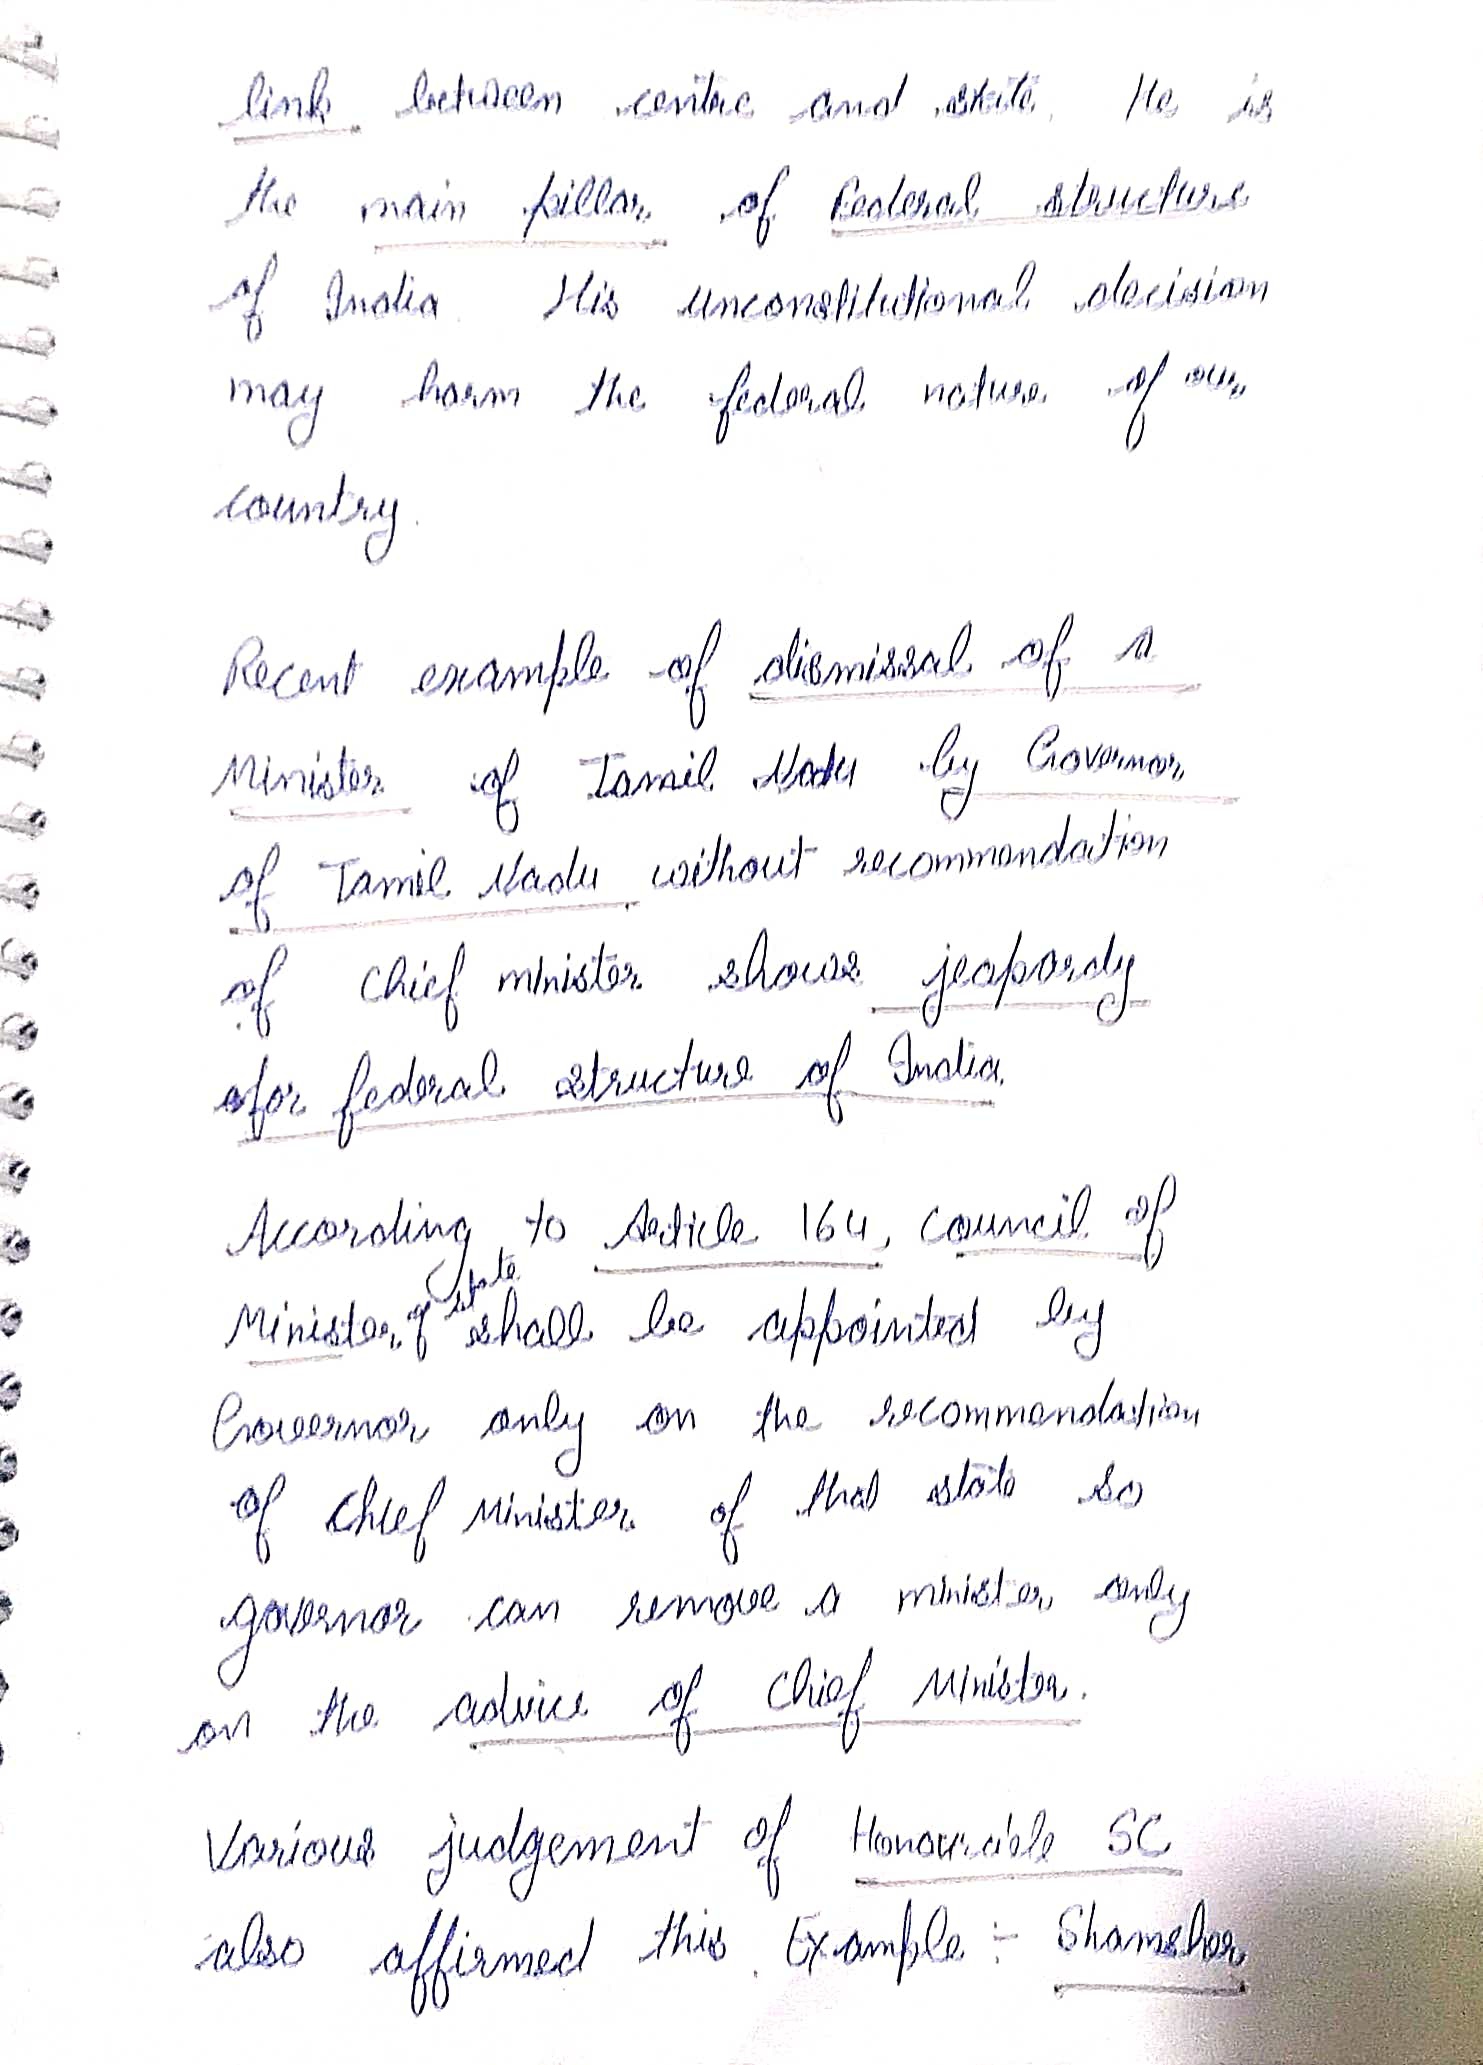 link between centre and state. He is
the main pillar of Federal structure
of India. His unconstitutional decision
may harm the federal nature of our
country.
Recent example of dismissal of a
Minister of Tamil Nadu by Governor
of Tamil Nadu without recommendation
of Chief minister shows jeapordy
for federal structure of India.
According to Article 164, Council of
Minister of state shall be appointed by
Governor only on the recommendation
of Chief Minister of that state so
governor can remove a minister only
on the advice of Chief Minister.
Various judgement of Honourable SC
also affirmed this. Example :- Shamsher